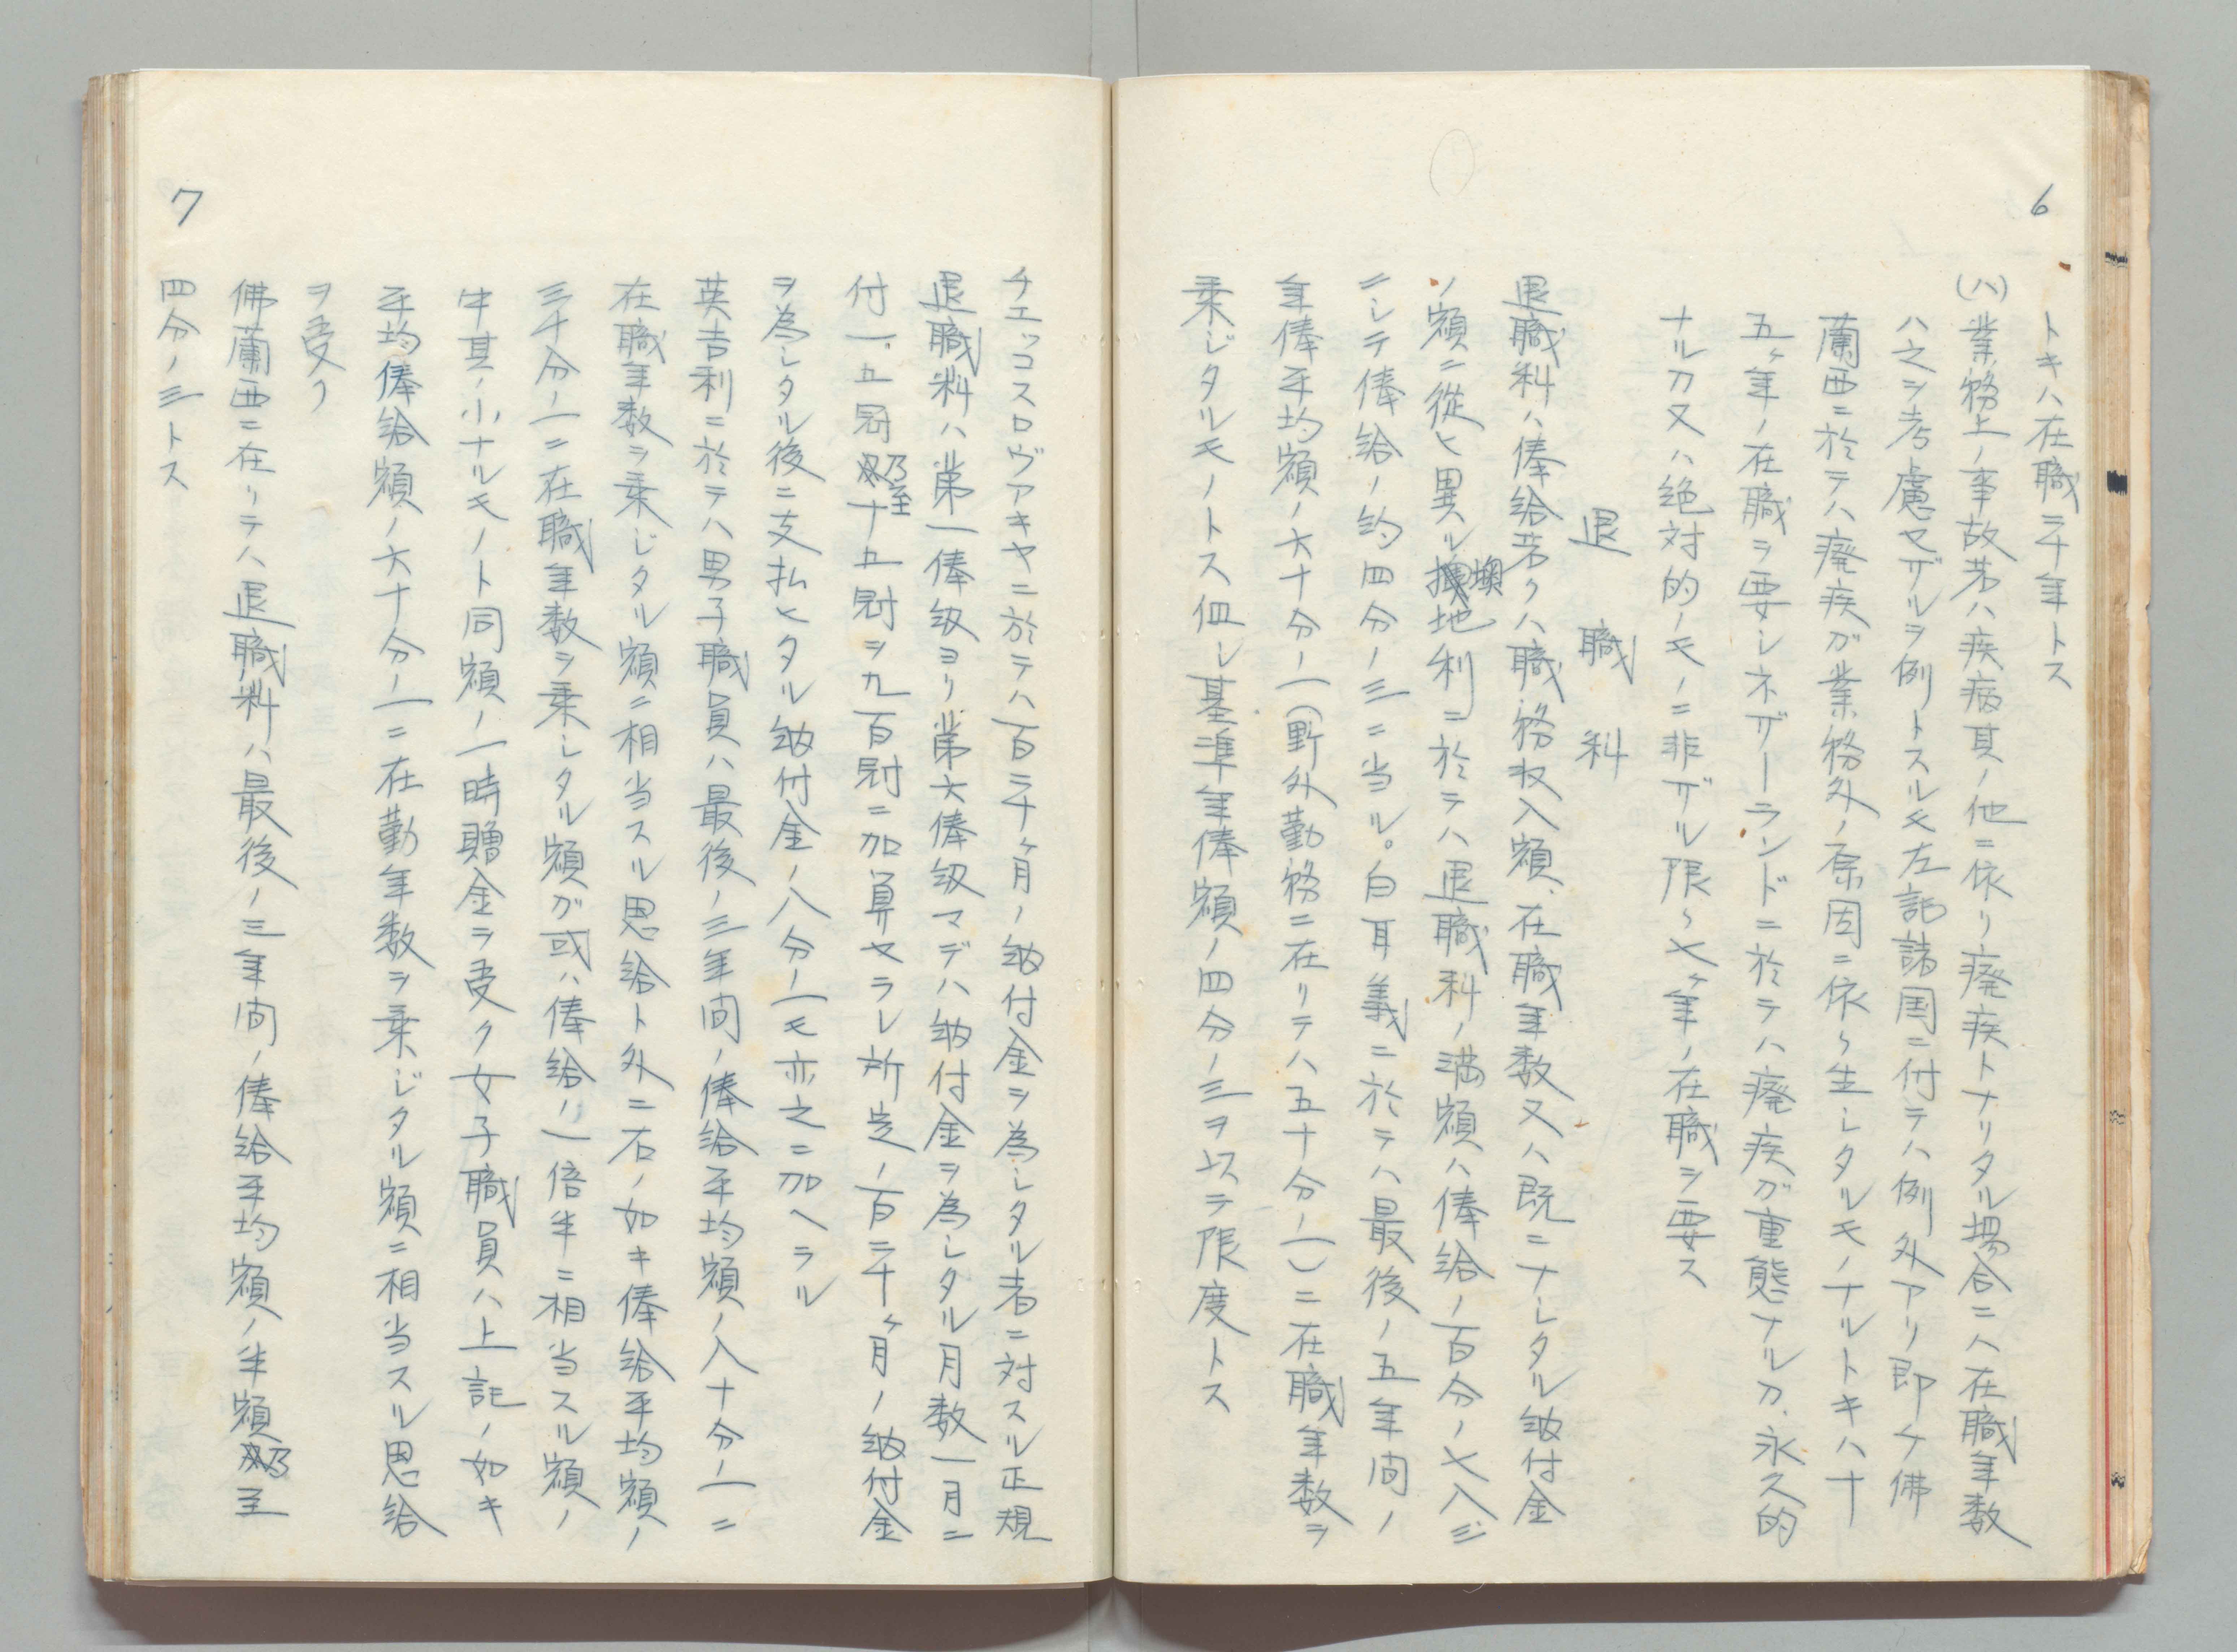 6
トキハ在職三十年トス
(ハ)業務上ノ事故若ハ疾病其ノ他ニ依リ癈疾トナリタル場合ニハ在職年数
ハ之ヲ考慮セザルヲ例トスルモ左記諸国ニ付テハ例外アリ即チ佛
蘭西ニ於テハ癈疾ガ業務外ノ原因ニ依リ生シタルモノナルトキハ十
五ヶ年ノ在職ヲ要シネザーランドニ於テハ癈疾ガ重態ナルカ、永久的
ナルカ又ハ絶対的ノモノニ非ザル限リ七ヶ年ノ在職ヲ要ス
退職料
退職料ハ俸給若クハ職務収入額、在職年数又ハ既ニナシタル納付金
ノ額ニ従ヒ異ル墺地利ニ於テハ退職料ノ満額ハ俸給ノ百分ノ七八・三
ニシテ俸給ノ約四分ノ三ニ当ル。白耳義ニ於テハ最後ノ五年間ノ
年俸平均額ノ六十分ノ一(野外勤務ニ在リテハ五十分ノ一)ニ在職年数ヲ
乗ジタルモノトス但シ基準年俸額ノ四分ノ三ヲ以テ限度トス
チエッコスロヴァキヤニ於テハ百二十ヶ月ノ納付金ヲ為シタル者ニ対スル正規
退職料ハ第一俸級ヨリ第六俸級マデハ納付金ヲ為シタル月数一月ニ
付一、五冠乃至十五冠ヲ九百冠ニ加算セラレ所定ノ百二十ヶ月ノ納付金
ヲ為シタル後ニ支払ヒタル納付金ノ八分ノ一モ亦之ニ加ヘラル
英吉利ニ於テハ男子職員ハ最後ノ三年間ノ俸給平均額ノ八十分ノ一ニ
在職年数ヲ乗ジタル額ニ相当スル恩給ト外ニ右ノ如キ俸給平均額ノ
三十分ノ一ニ在職年数ヲ乗シタル額ガ或ハ俸給ノ一倍半ニ相当スル額ノ
中其ノ小ナルモノト同額ノ一時贈金ヲ受ク女子職員ハ上記ノ如キ
平均俸給額ノ六十分ノ一ニ在勤年数ヲ乗ジタル額ニ相当スル恩給
ヲ受ク
佛蘭西ニ在リテハ退職料ハ最後ノ三年間ノ俸給平均額ノ半額乃至
四分ノ三トス
7